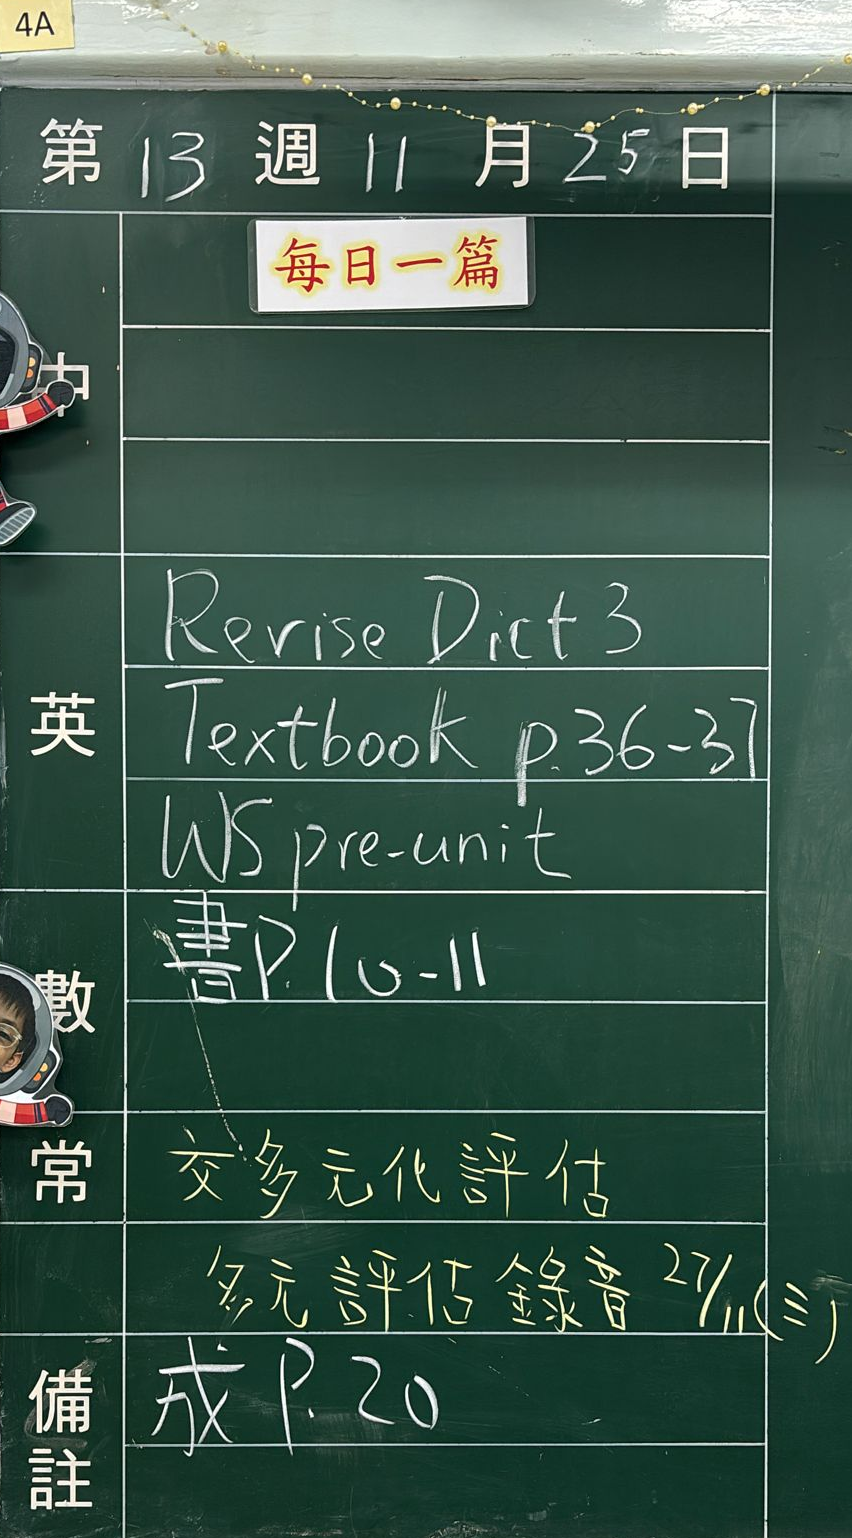 4A
第 13 週 11 月 25 日
每日一篇
中
Revise Dict 3
英
Textbook p.36-37
WS pre-unit
書P.10-11
數
常
交多元化評估
多元評估錄音 27/11(三)
備註
成 P.20